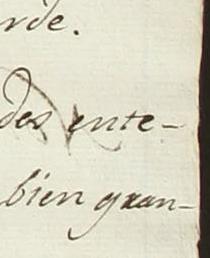 rde.
des ente-
bien gran-